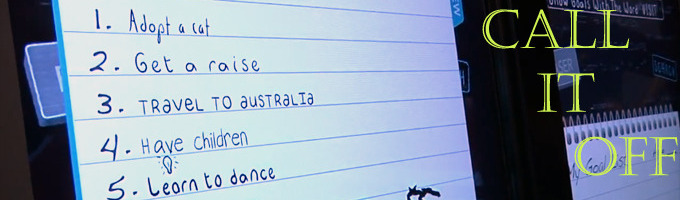 1. Adopt a cat
2. Get a raise
3. TRAVEL TO aUSTRALIa
4. Have children
5. Learn to dance
CALL
IT
OFF
My Goal